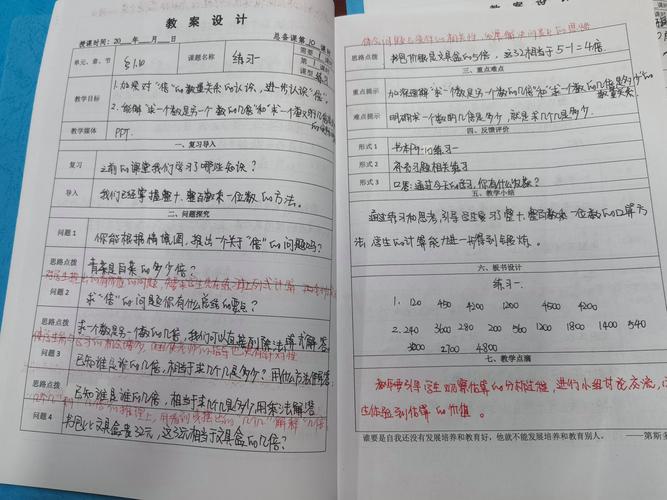 教 案 设 计
授课时间：20 年 月 日
总备课第10课时
单元、章、节
§1.4
课题名称
练习一
第1课时
课型 练习
教学目标
1.加深对“倍”的数量关系的认识，进一步认识“倍”。
2.能解“求一个数是另一个数的几倍”和“求一个数的几倍
教学媒体
PPT.
一、复习导入
复习
之前的课堂我们学习了哪些知识？
导入
我们已经掌握整十、整百数乘一位数的方法。
二、问题探究
问题 1
你能根据情境图，提出一个关于“倍”的问题吗？
思路点拨
青菜是白菜的多少倍？
问题 2
求“倍”的问题你有什么总结的要点？
思路点拨
求一个数是另一个数的几倍，我们可以直接列除法算式解答
问题 3
已知谁是谁的几倍，相当于求几个几是多少？用什么方法解答
思路点拨
已知谁是谁的几倍，相当于求几个几是多少，用乘法解答
问题 4
书包比文具盒贵32元，这32元相当于文具盒的几倍？
思路点拨
书包价格是文具盒的5倍，这32相当于5-1=4倍.
三、重点难点
重点揭示
加深理解“求一个数是另一个数的几倍”和“求一个数的几倍是多少”的
数量关系
难点提示
明确求一个数的几倍是多少，就是求几个几是多少.
四、反馈评价
形式 1
书本P9-10练习一
形式 2
补充习题相关练习
形式 3
口答：通过今天的学习，你有什么收获？
五、教学小结
通过练习和思考，引导学生复习了整十、整百数乘一位数的口算方
法，学生的计算能力进一步得到锻炼。
六、板书设计
练习一
1. 120 450 4200 1200 4500 4200
2. 240 3600 280 200 560 1200 1800 1400 540
3000 2700 4800
七、教学点滴
教师要引导学生观察估算的分析过程，进行小组讨论交流，
生体验到估算的价值。
谁要是自我还没有发展培养和教育好，他就不能发展培养和教育别人。
——第斯多